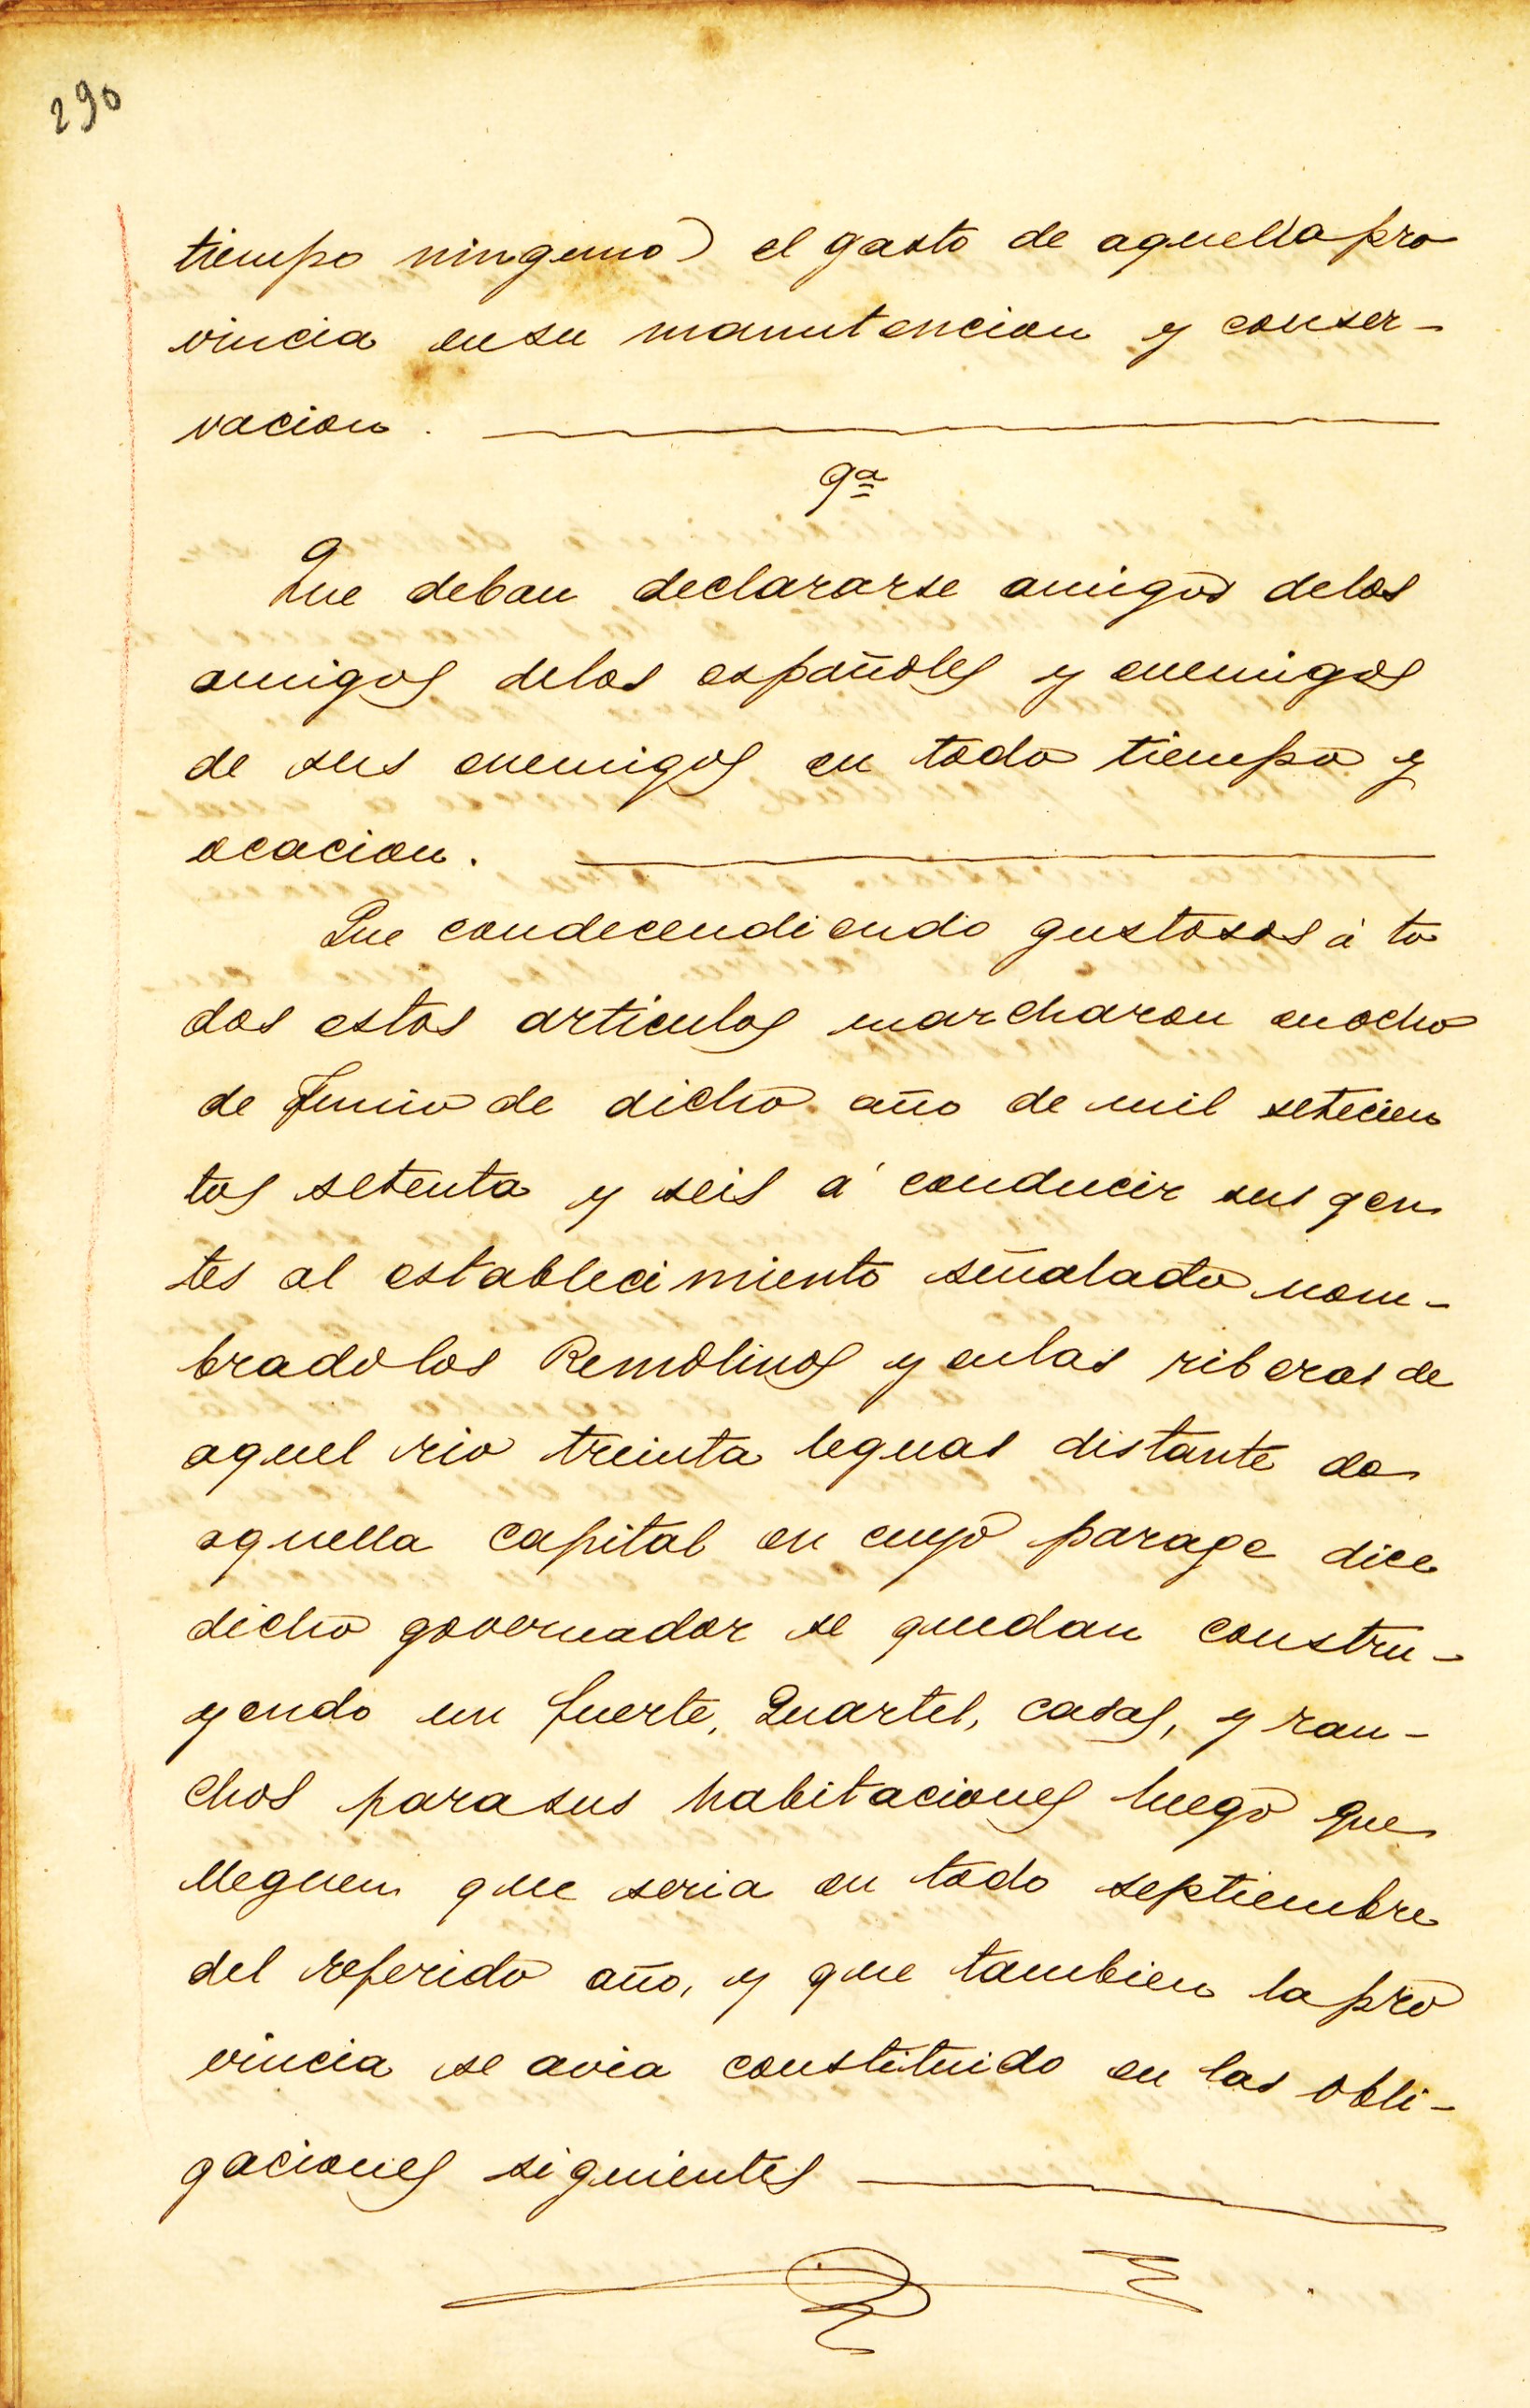 290
tiempo ninguno) el gasto de aquella pro
vincia en su manutencion y conser-
vacion.
9ª
Que deban declararse amigos delos
amigos delos españoles y enemigos
de sus enemigos en todo tiempo y
ocacion.
Que condecendiendo gustosos á to
dos estos articulos marcharon en ocho
de Junio de dicho año de mil setecien
tos setenta y seis á conducir sus gen
tes al establecimiento señalado nom-
brado los Remolinos y en las riberas de
aquel rio treinta leguas distante de
aquella capital en cuyo parage dice
dicho governador se quedan constru-
yendo un fuerte, Quartel, casas, y ran-
chos para sus habitaciones luego que
lleguen que seria en todo septiembre
del referido año, y que tambien la pro
vincia se avia constituido en las obli-
gaciones siguientes